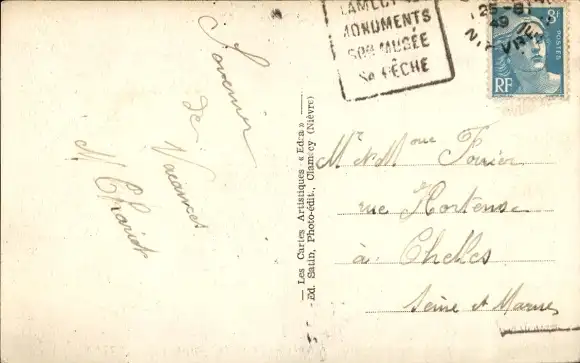 Souvenir
de
Vacances
M Chariot
— Les Cartes Artistiques « Edsa » —
Ed. Satin, Photo-édit., Clamecy (Nièvre)
MONUMENTS
SON MUSÉE
SA PÊCHE
25-8
49
8F
POSTES
RF
Mr & Mme
rue Hortense
à Chelles
Seine et Marne